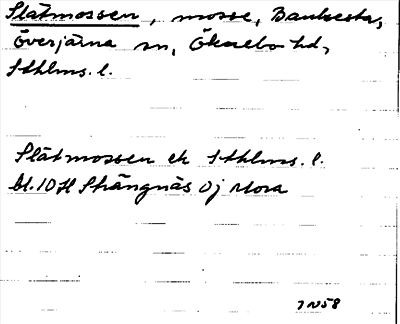 Slätmossen, mosse, Bankesta,
Överjärna sn, Öknebo hd,
Sthlms. l.
Slätmossen ek Sthlms. l.
bl. 10H Strängnäs 0j Mora